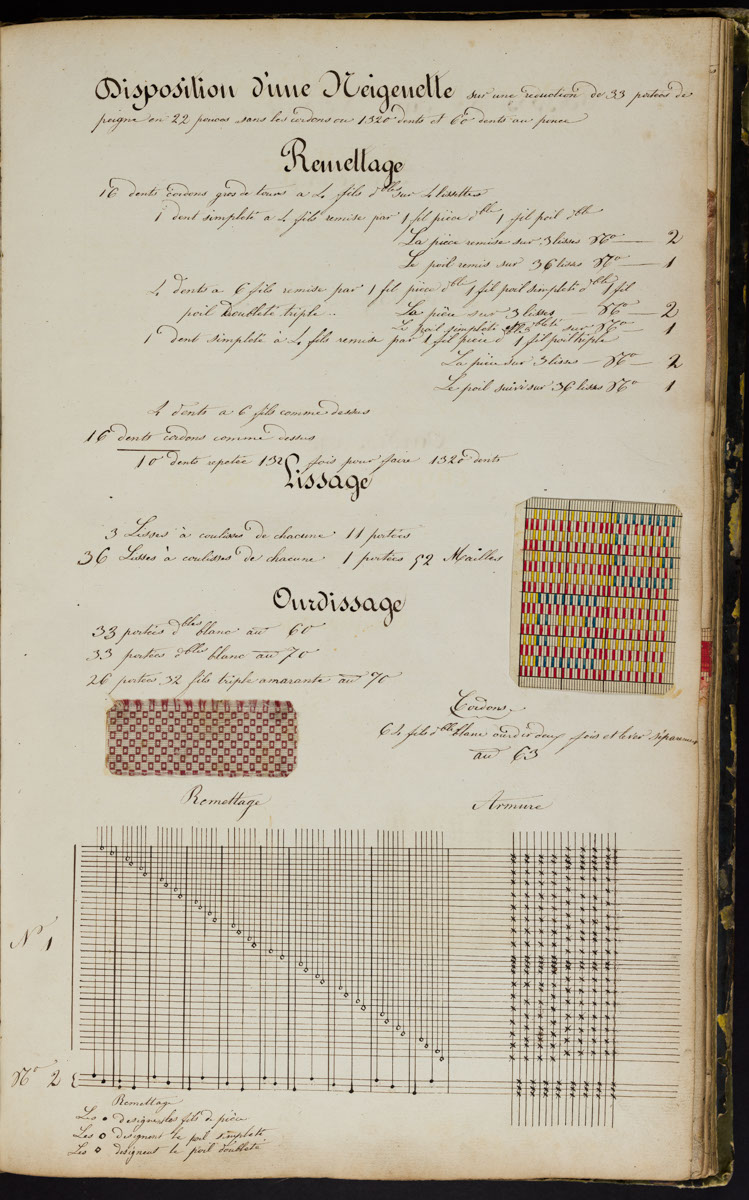 Disposition d'une Neigenette sur une reduction de 33 portées de
peigne en 22 pouces sans les cordons ou 1320 dents et 60 dents au pouce
Remettage
16 dents cordons gros de tours a 4 fils d^bles sur 4 lissettes
1 dent simpleté à 4 fils remise par 1 fil pièce d^ble 1 fil poil d^ble
La pièce remise sur 3 lisses N^o — 2
Le poil remis sur 36 lisses N^o — 1
4 dents a 6 fils remise par 1 fil pièce d^ble 1 fil poil simpleté d^ble 1 fil
poil doubleté triple .. La pièce sur 3 lisses — N^o — 2
Le poil simpleté doubleté sur N^o — 1
1 dent simpleté à 4 fils remise par 1 fil pièce d 1 fil poil triple
La pièce sur 3 lisses — N^o — 2
Le poil suivi sur 36 lisses N^o 1
4 dents a 6 fils comme dessus
16 dents cordons comme dessus
10 dents repetée 132 fois pour faire 1320 dents
Lissage
3 Lisses à coulisses de chacune 11 portées
36 Lisses à coulisses de chacune 1 portées 52 Mailles
Ourdissage
33 portées d^bles blanc au 60
33 portées d^bles blanc au 70
26 portées 32 fils triple amarante au 70
Cordons
64 fils d^bles blanc ourdir deux fois et lever séparement
au 63
Remettage
Armure
N^o 1
N^o 2
Remettage
Les • designes les fils de pièce
Les o designent le poil simpleté
Les o designent le poil doubleté